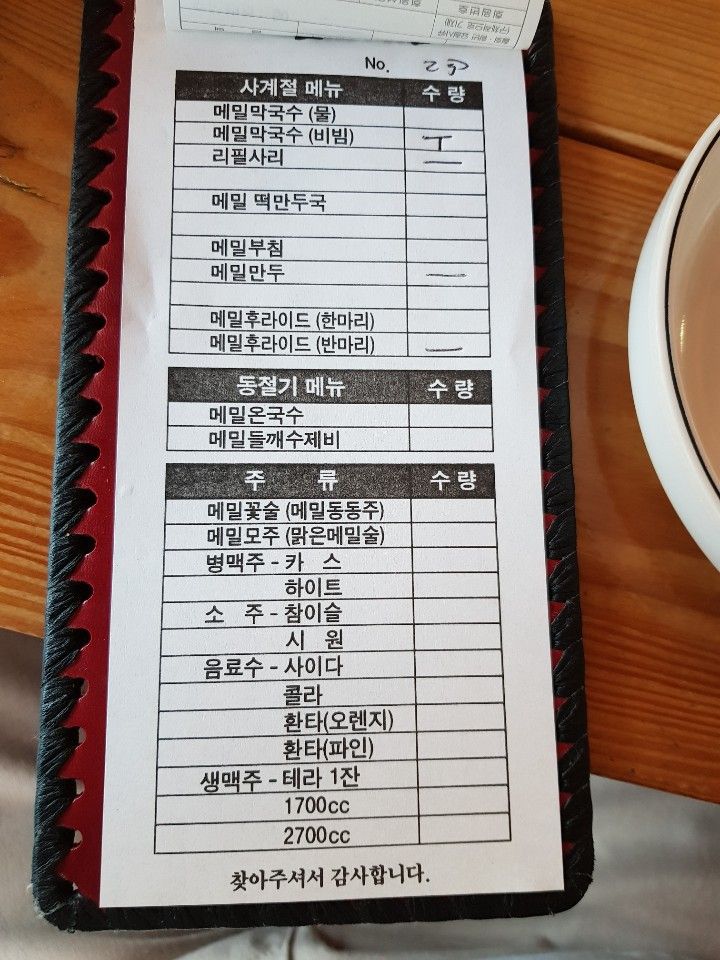 회원번호
No.
사계절 메뉴 수 량
메밀막국수 (물)
메밀막국수 (비빔) ㅜ
리필사리 ㅡ
메밀 떡만두국
메밀부침
메밀만두 ㅡ
메밀후라이드 (한마리)
메밀후라이드 (반마리) ㅡ
동절기 메뉴 수 량
메밀온국수
메밀들깨수제비
주 류 수 량
메밀꽃술 (메밀동동주)
메밀모주 (맑은메밀술)
병맥주 - 카 스
하이트
소 주 - 참이슬
시 원
음료수 - 사이다
콜라
환타(오렌지)
환타(파인)
생맥주 - 테라 1잔
1700cc
2700cc
찾아주셔서 감사합니다.